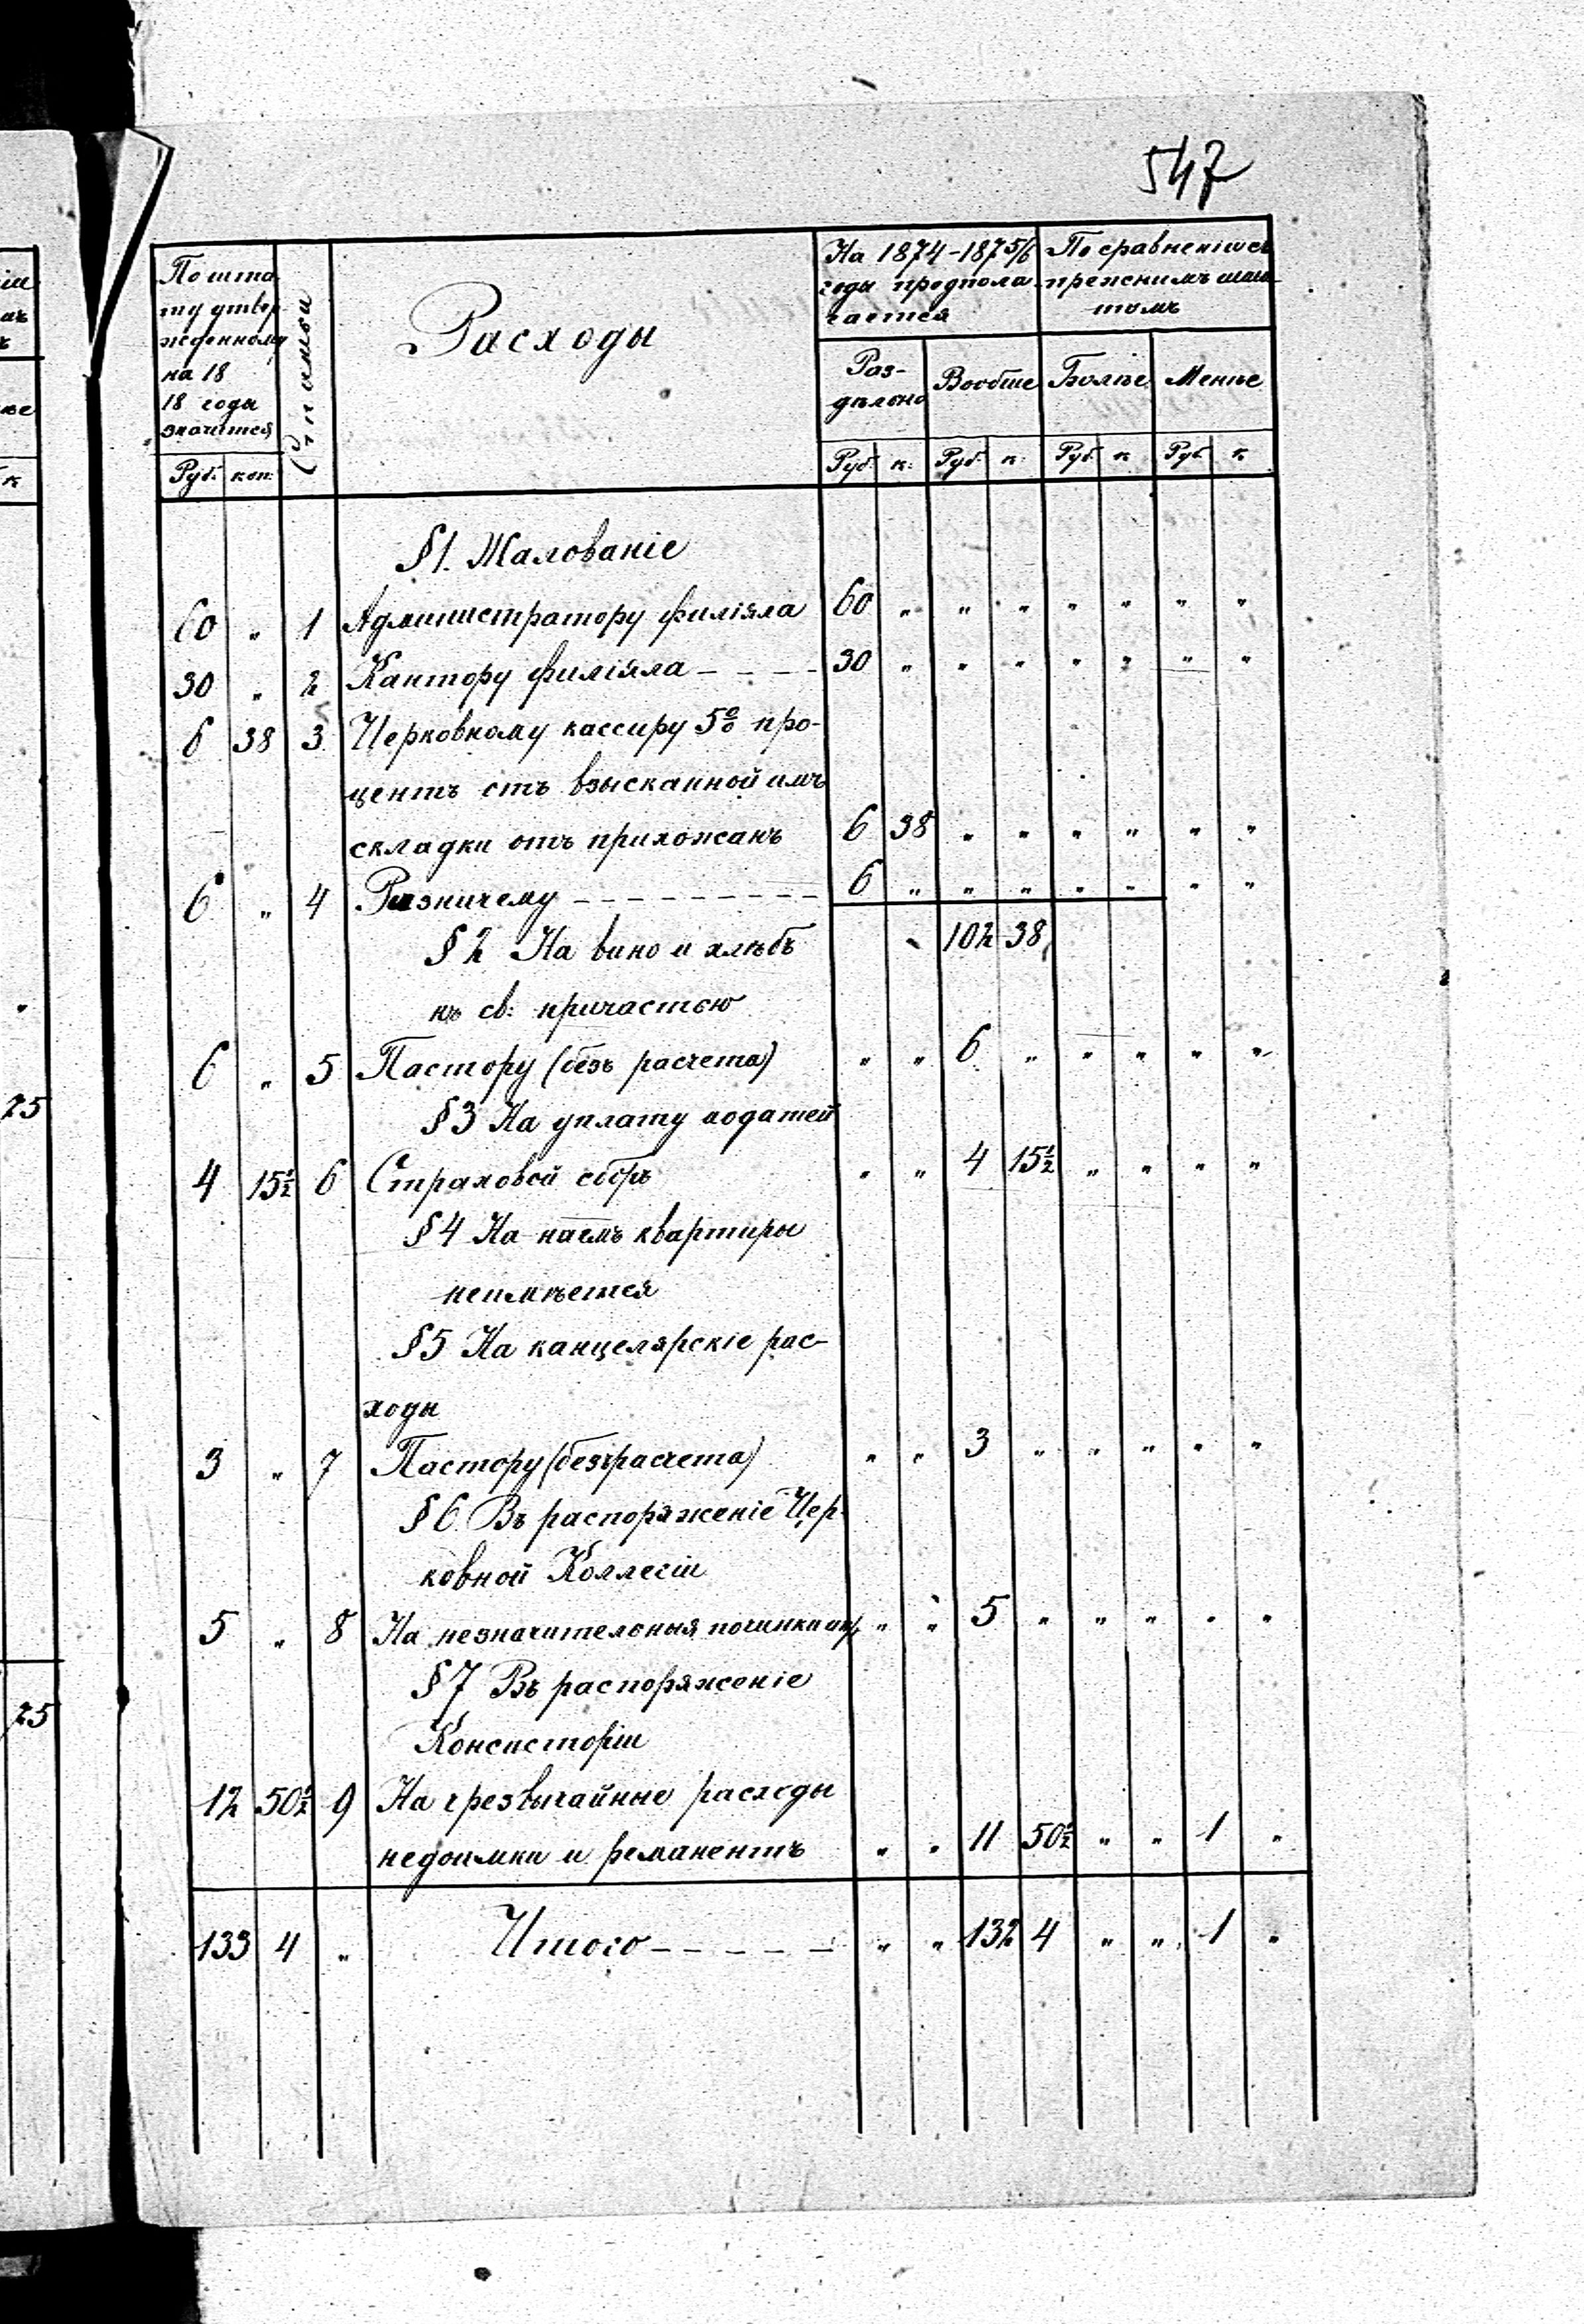 547
По шта-
ту утвер
жденному
на 18
18 годы
значится
Статьи
Расходы
На 1874-1875/6
годы предпола-
гается
По сравненію съ
прежнимъ шта-
томъ
Раз-
дѣльно
Вообще
Болѣе
Менѣе
Руб. коп. Руб. к. Руб. к. Руб. к. Руб. к.
§1. Жалованіе
60 „ 1 Администратору филіяла 60 „ „ „ „ „ „ „
30 „ 2 Кантору филіяла - - - - 30 „ „ „ „ „ „ „
6 38 3 Церковному кассиру 5% про-
центъ съ взысканной имъ
складки отъ прихожанъ 6 38 „ „ „ „ „ „
6 „ 4 Ризничему - - - - - - - - - 6 „ „ „ „ „ „ „
§2 На вино и хлѣбъ 102 38
къ св: причастью
6 „ 5 Пастору (безъ расчета) „ „ 6 „ „ „ „ „
§3 На уплату податей
4 15½ 6 Страховой сборъ „ „ 4 15½ „ „ „ „
§4 На наемъ квартиры
неимѣется
§5 На канцелярскіе рас-
ходы
3 „ 7 Пастору (безъ расчета) „ „ 3 „ „ „ „ „
§6. Въ распоряженіе Цер-
ковной Коллегіи
5 „ 8 На незначительныя починки „ „ 5 „ „ „ „ „
§7 Въ распоряженіе
Консисторіи
12 50½ 9 На чрезвычайные расходы
недоимки и реманентъ „ „ 11 50½ „ „ 1 „
133 4 „ Итого - - - - - „ „ 132 4 „ „ 1 „
25
25